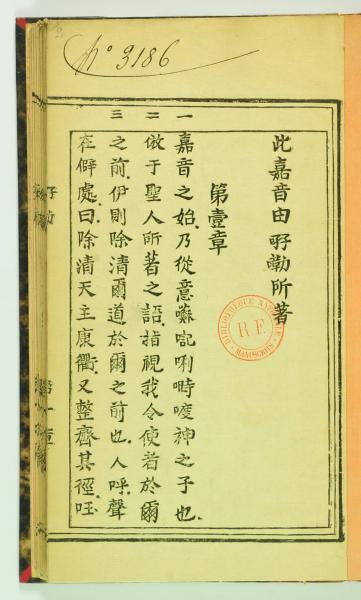 N° 3186
此嘉音由𡥦勒所著
第壹章
一 嘉音之始.乃從意囌𠲖唎嘶㗶神之子也.
二 倣于聖人所著之語.指視我令使者於爾
三 之前.伊則除清爾道於爾之前也.人呼.聲
在僻處.曰.除清天主康衢.又整齊其徑.
BIBLIOTHEQUE NATIONALE MANUSCRITS
R.F.